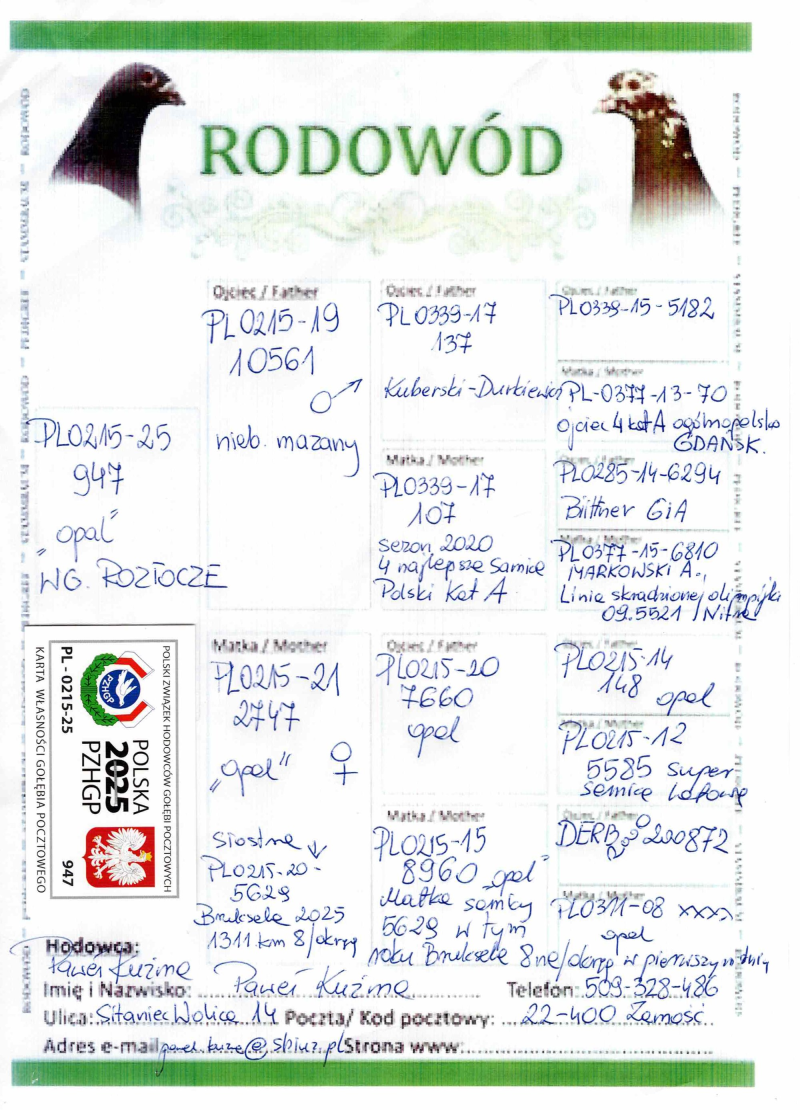 RODOWÓD
PL0215-25
947
"opal"
WG. ROZTOCZE
POLSKI ZWIĄZEK HODOWCÓW GOŁĘBI POCZTOWYCH
PZHGP
POLSKA
2025
PZHGP
PL - 0215-25
947
KARTA WŁASNOŚCI GOŁĘBIA POCZTOWEGO
Ojciec / Father
PL0215-19
10561
♂
nieb. mazany
Ojciec / Father
PL0339-17
137
Kuberski-Durkiewicz
Ojciec / Father
PL0339-15-5182
Matka / Mother
PL-0377-13-70
ojciec 4 kat A ogólnopolsko
GDAŃSK.
Matka / Mother
PL0339-17
107
sezon 2020
4 najlepsza Samica
Polski Kat A
Ojciec / Father
PL0285-14-6294
Büttner GiA
Matka / Mother
PL0377-15-6810
MARKOWSKI A.,
Linia skradzionej olimpijki
09.5521 /Nitra
Matka / Mother
PL0215-21
2747
"opal" ♀
siostra
PL0215-20-
5629
Bruksela 2025
1311 km 8/okręg
Ojciec / Father
PL0215-20
7660
opal
PL0215-14
148 opal
Matka / Mother
PL0215-12
5585 super
samica lotowa
Matka / Mother
PL0215-15
8960 "opal"
Matka samicy
5629 w tym
roku Bruksela 8 na/okręg w pierwszym dniu
Ojciec / Father
DERB 200872
Matka / Mother
PL0311-08 xxxx
opal
Hodowca:
Paweł Kuźma
Imię i Nazwisko: Paweł Kuźma Telefon: 509-328-486
Ulica: Sitaniec Wolica 14 Poczta/ Kod pocztowy: 22-400 Zamość
Adres e-mail Strona www: